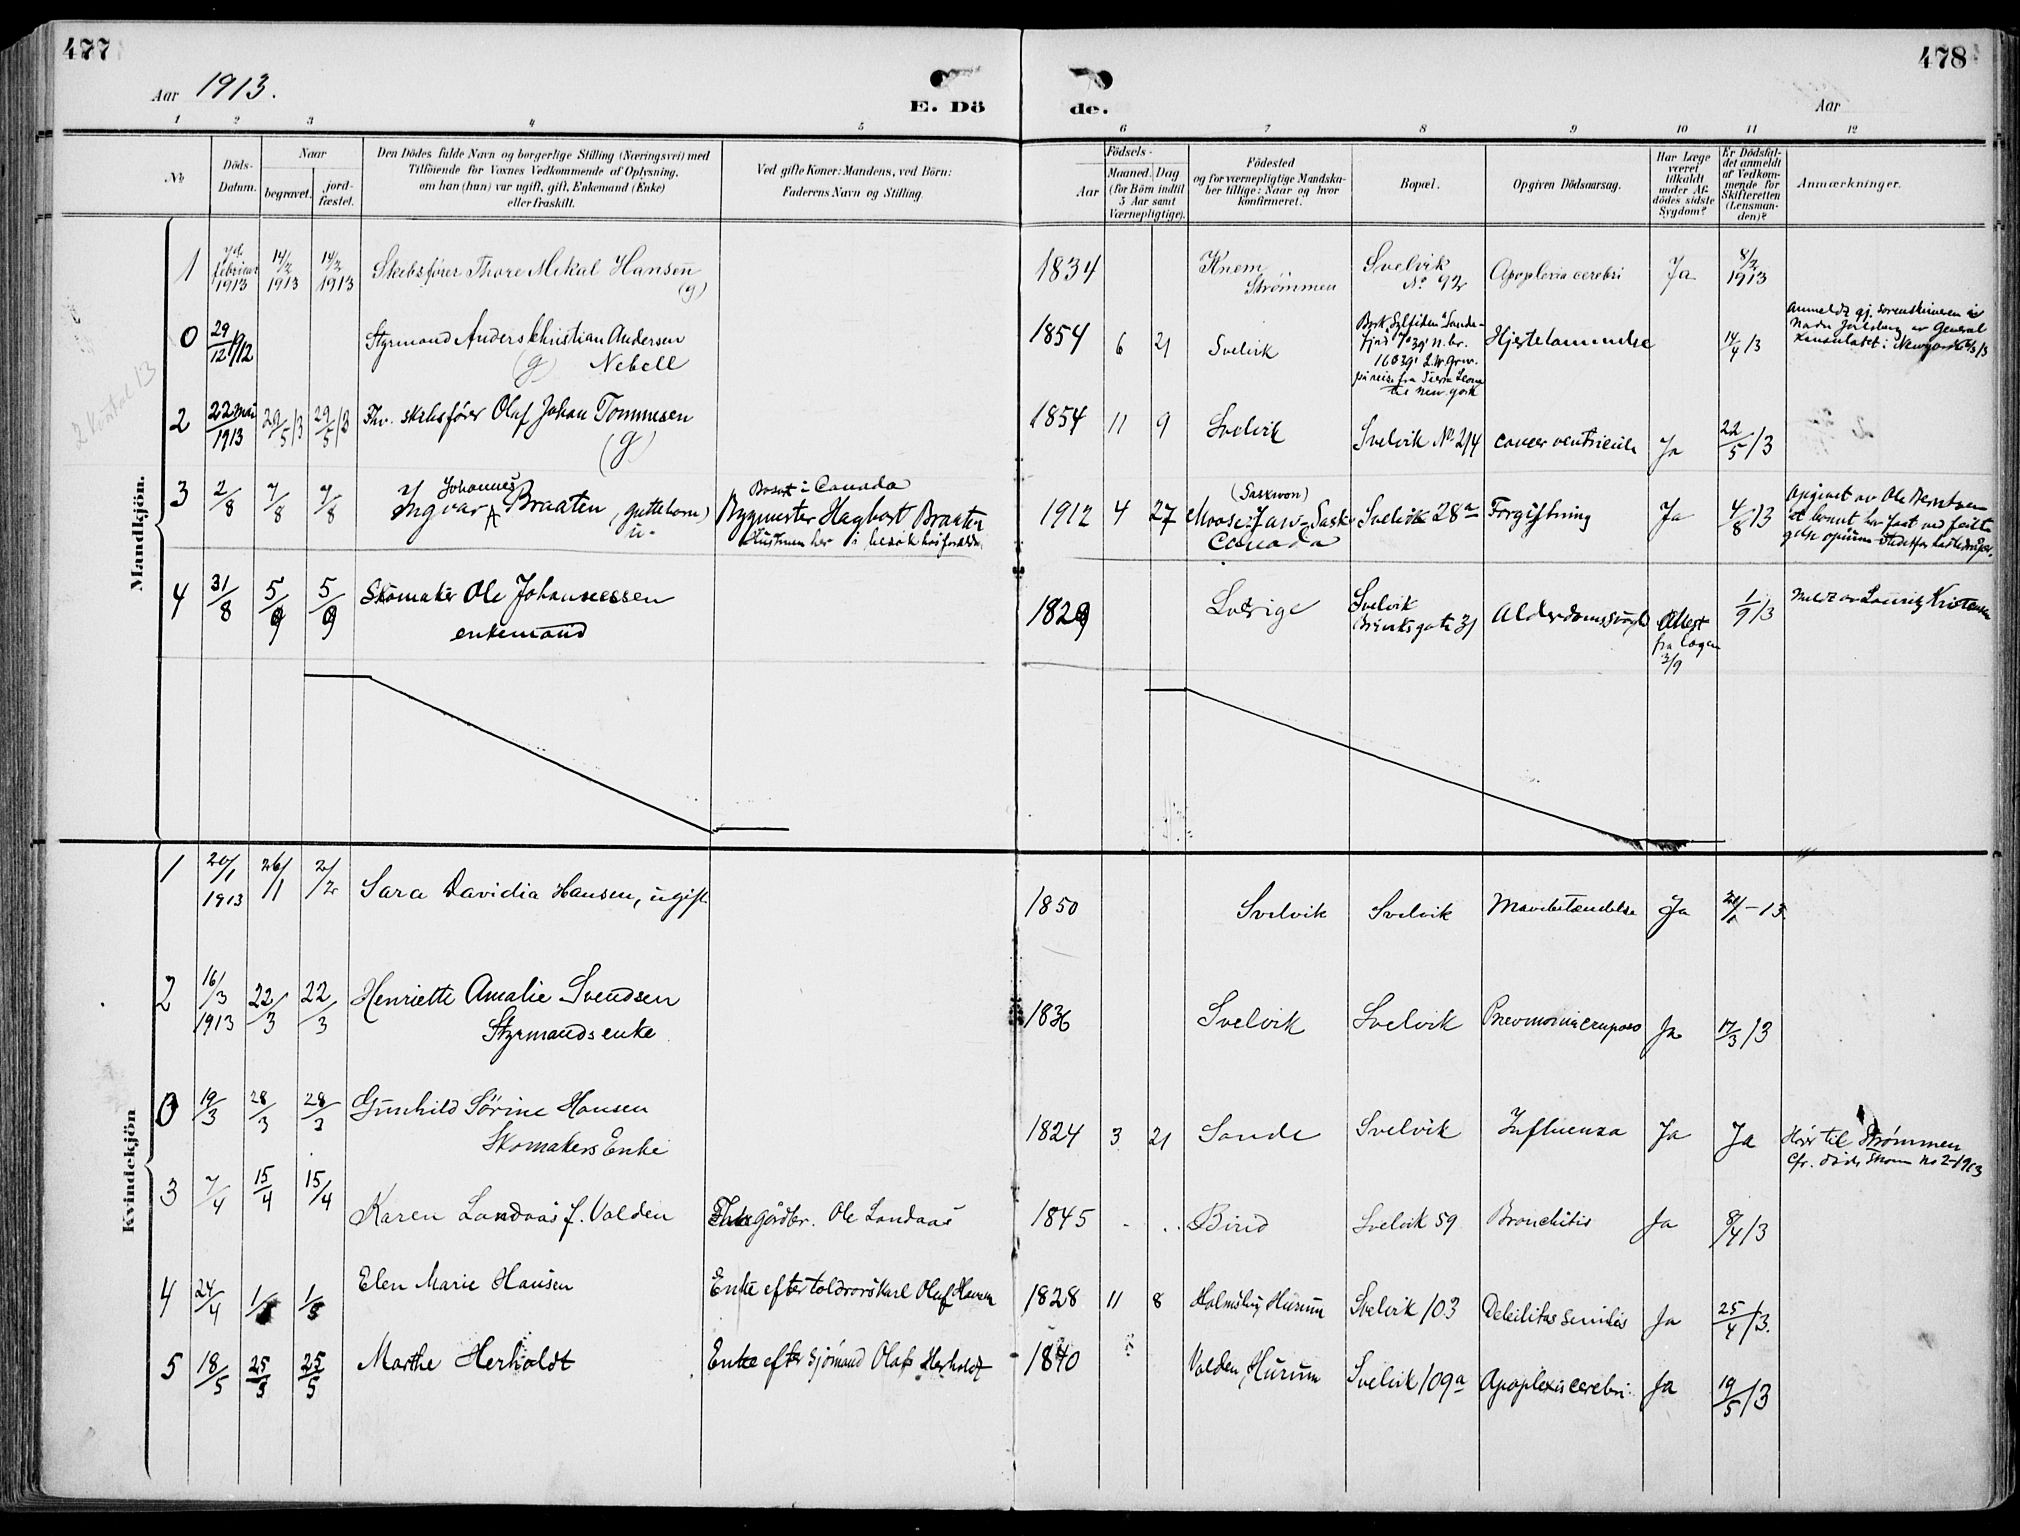 477
478
Aar 1913.
E. Dö
de.
Aar
1 2 3 4 5 6 7 8 9 10 11 12
No
Döds-
Datum.
Naar
begravet.
jord-
fæstet.
Den Dödes fulde Navn og borgerlige Stilling (Næringsvei) med
Tilföiende for Voxnes Vedkommende af Oplysning,
om han (hun) var ugift, gift, Enkemand (Enke)
eller fraskilt.
Ved gifte Koner: Mandens, ved Börn:
Faderens Navn og Stilling.
Födsels-
Aar
Maaned. Dag
(for Börn indtil
5 Aar samt
Værnepligtige).
Födested
og for værnepligtige Mandska-
ber tillige: Naar og hvor
konfirmeret.
Bopæl.
Opgiven Dödsaarsag.
Har Læge
været
tilkaldt
under Af-
dödes sidste
Sygdom?
Er Dödsfal-
det anmeldt
af Vedkom-
mende for
Skifteretten
(Lensman-
den)?
Anmærkninger.
Mandkjön.
1 7d. februar 1913 14/2 1913 14/2 1913 Skibsfører Thore Mikal Hansen (g) 1834 Knem Strømmen Svelvik No 92 Apoplexia cerebri Ja 8/2 1913
0 29/12 1912 Styrmand Anders Christian Andersen Nebell (g) 1854 6 21 Svelvik Bark Sylfiden Sande-
på reise fra Sierra Leone
til New-York
Hjertelammelse 14/4 13
Anmeldt gj. sorenskriveren i
Nordre Jarlsberg av General
konsulatet i Newyork
2 Kvartal 13
2 22 mai 1913 29/5 13 29/5 13 Fhv. skibsfører Olaf Johan Tommesen (g) 1854 11 9 Svelvik Svelvik No 214 cancer ventriculi Ja 22/5 13
3 2/8 7/8 7/8 Ingvar Johannes Braaten (guttebarn) u. Bosat i Canada
Bygmester Hagbart Braaten
Hustruen her i besøk hos forældre
1912 4 27 Moose-Jaw-Sask. Canada Svelvik 28a Forgiftning Ja 4/8 13
Opgivet av Ole Berntzen
at barnet har faat ved feilta-
gelse opium istedetfor
4 31/8 5/9 5/9 Skomaker Ole Johannessen
enkemand
1829 Sverige Svelvik
Alderdomssvagh. Attest
fra lægen
3/9
1/9 13 Meldt av Lauritz Kristensen
Kvindekjön
1 20/1 1913 26/1 2/2 Sara Davidia Hansen, ugift 1850 Svelvik Svelvik Mavebetændelse Ja -13.
2 16/3 1913 22/3 22/3 Henriette Amalie Svendsen
Styrmands enke
1836 Svelvik Svelvik Pnevmonia cruposa Ja 17/3 13
0 19/3 28/3 28/3 Gunhild Sørine Hansen
Skomakers Enke
1824 3 21 Sande Svelvik Influenza Ja Ja Hører til Strømmen
Cfr. døde Strøm no 2-1913
3 7/4 15/4 15/4 Karen Landaas f. Valden Gårdbr. Ole Landaas 1845 Birid Svelvik 59 Bronchitis Ja 8/4 13
4 24/4 1/5 1/5 Elen Marie Hansen Enke efter toldrorskarl Oluf Hansen 1828 11 8 Holmsbu, Hurum Svelvik 103 Debilitas senilis Ja 25/4 13.
5 18/5 25/5 25/5 Marthe Herholdt Enke efter sjømand Olaf Herholdt 1840 Valden, Hurum Svelvik 109a Apoplexia cerebri Ja 19/5 13